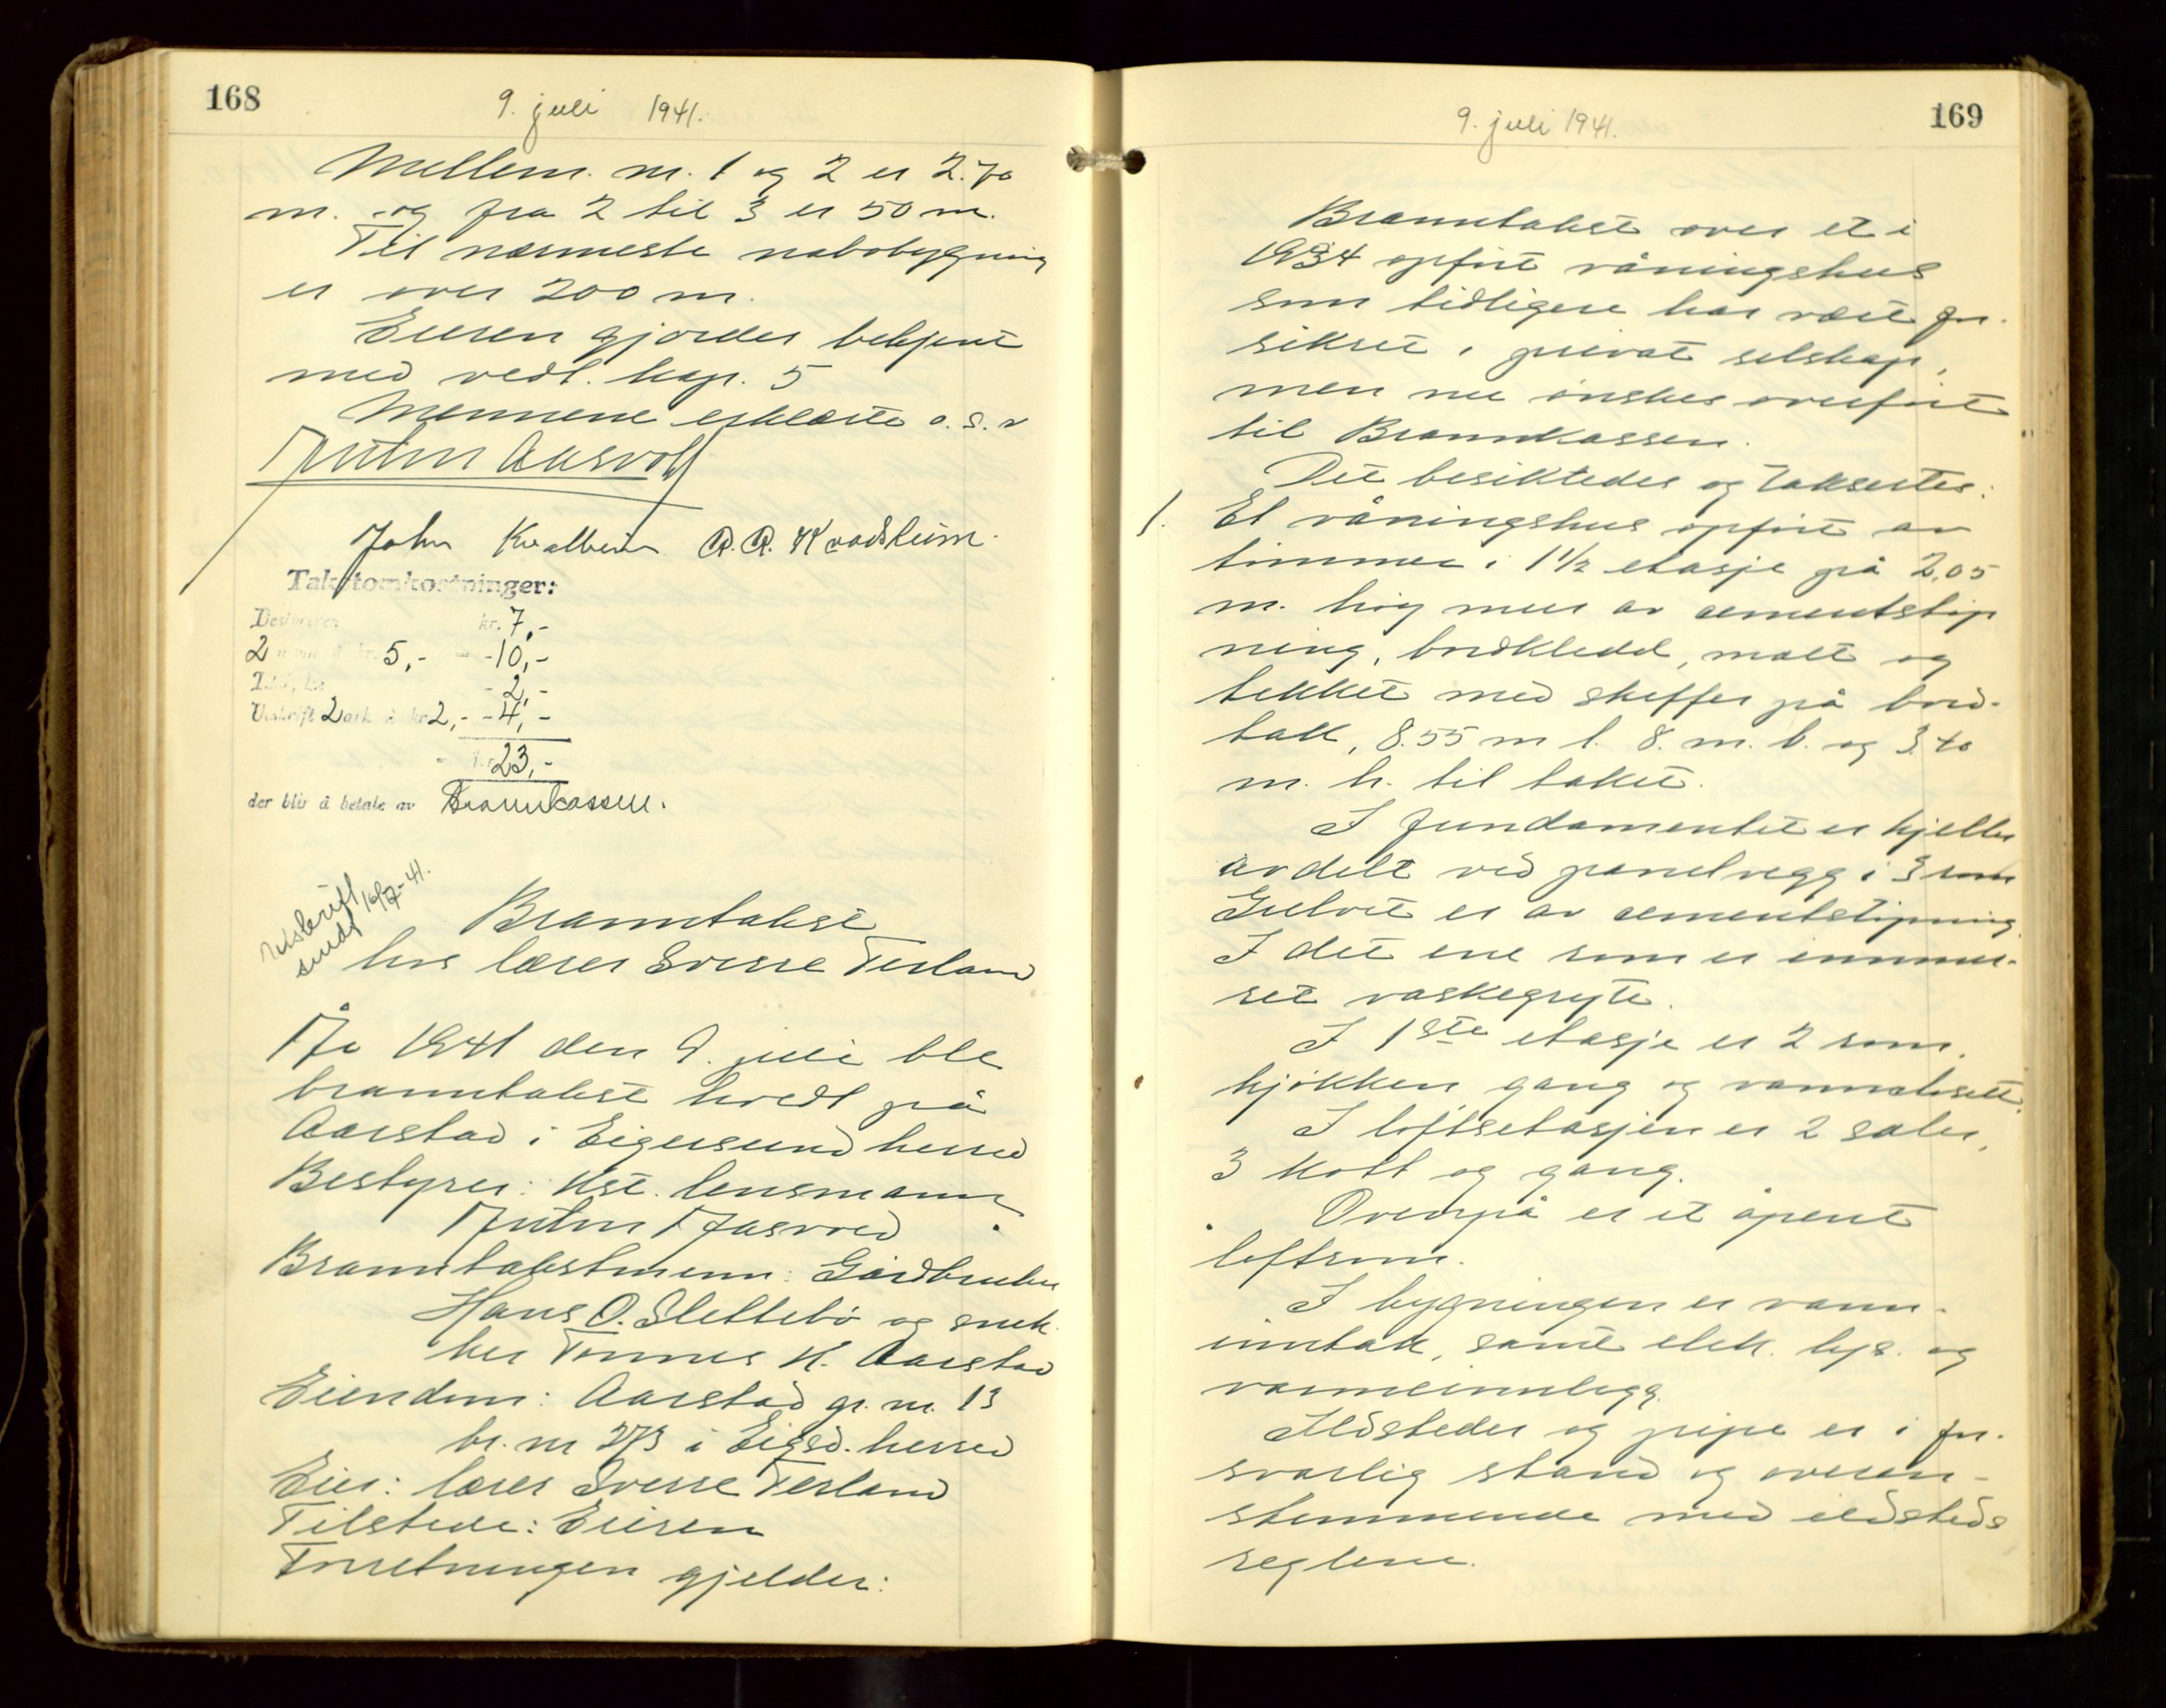 168
9. juli 1941.
Mellem. nr. 1 og 2 er 2.70
m. og fra 2 til 3 er 50 m.
Til nærmeste nabobygning
er over 200 m.
Eieren gjordes bekjent
med vedt. kap. 5
Mennene erklærte o.s.v
John Kvalheim R.R.
Takstomkostninger:
Bestyreren kr. 7,-
2 menn à kr. 5,- - -10,-
- 2,-
Utskrift 2 ark à kr 2,- - 4,-
kr 23,-
der blir å betale av Brannkassen.
Utskrift
sendt 16/7-41.
Branntakst
hos lærer Sverre Tesland
År 1941 den 9. juli ble
branntakst holdt på
Aarstad i Eigersund herred
Bestyrer: Kst. lensmann
Branntakstmenn: Gårdbruker
Hans O. Slettebö og snek-
ker Tönnes K. Aarstad
Eiendom: Aarstad gr. nr. 13
br. nr 273 i Eigsd. herred
Eier: lærer Sverre Tesland
Tilstede: Eieren
Forretningen gjelder:
169
9. juli 1941.
Branntakst over et i
1934 opfört våningshus
som tidligere har vært for-
sikret i privat selskap,
men nu önskes overfört
til Brannkassen.
Det besiktedes og taksertes:
1. Et våningshus opfört av
tömmer i 1 1/2 etasje på 2,05
m. höy mur av cementstöp
ning, bordkledd, malt og
tekket med skiffer på bord-
tak, 8.55 m l. 8. m. b. og 3.40
m. h. til taket.
I fundamentet er kjeller
avdelt ved panelvegg i 3 rom
Gulvet er av cementstöpning.
I det ene rom er innmu-
ret vaskegryte.
I 1ste etasje er 2 rom,
kjökken gang og vannklosett.
I loftsetasjen er 2 saler,
3 kott og gang.
Ovenpå er et åpent
loftsrom.
I bygningen er vann-
inntak, samt elek. lys. og
varmeinnlegg.
Ildsteder og pipe er i for-
svarlig stand og overen-
stemmende med ildsteds
reglene.